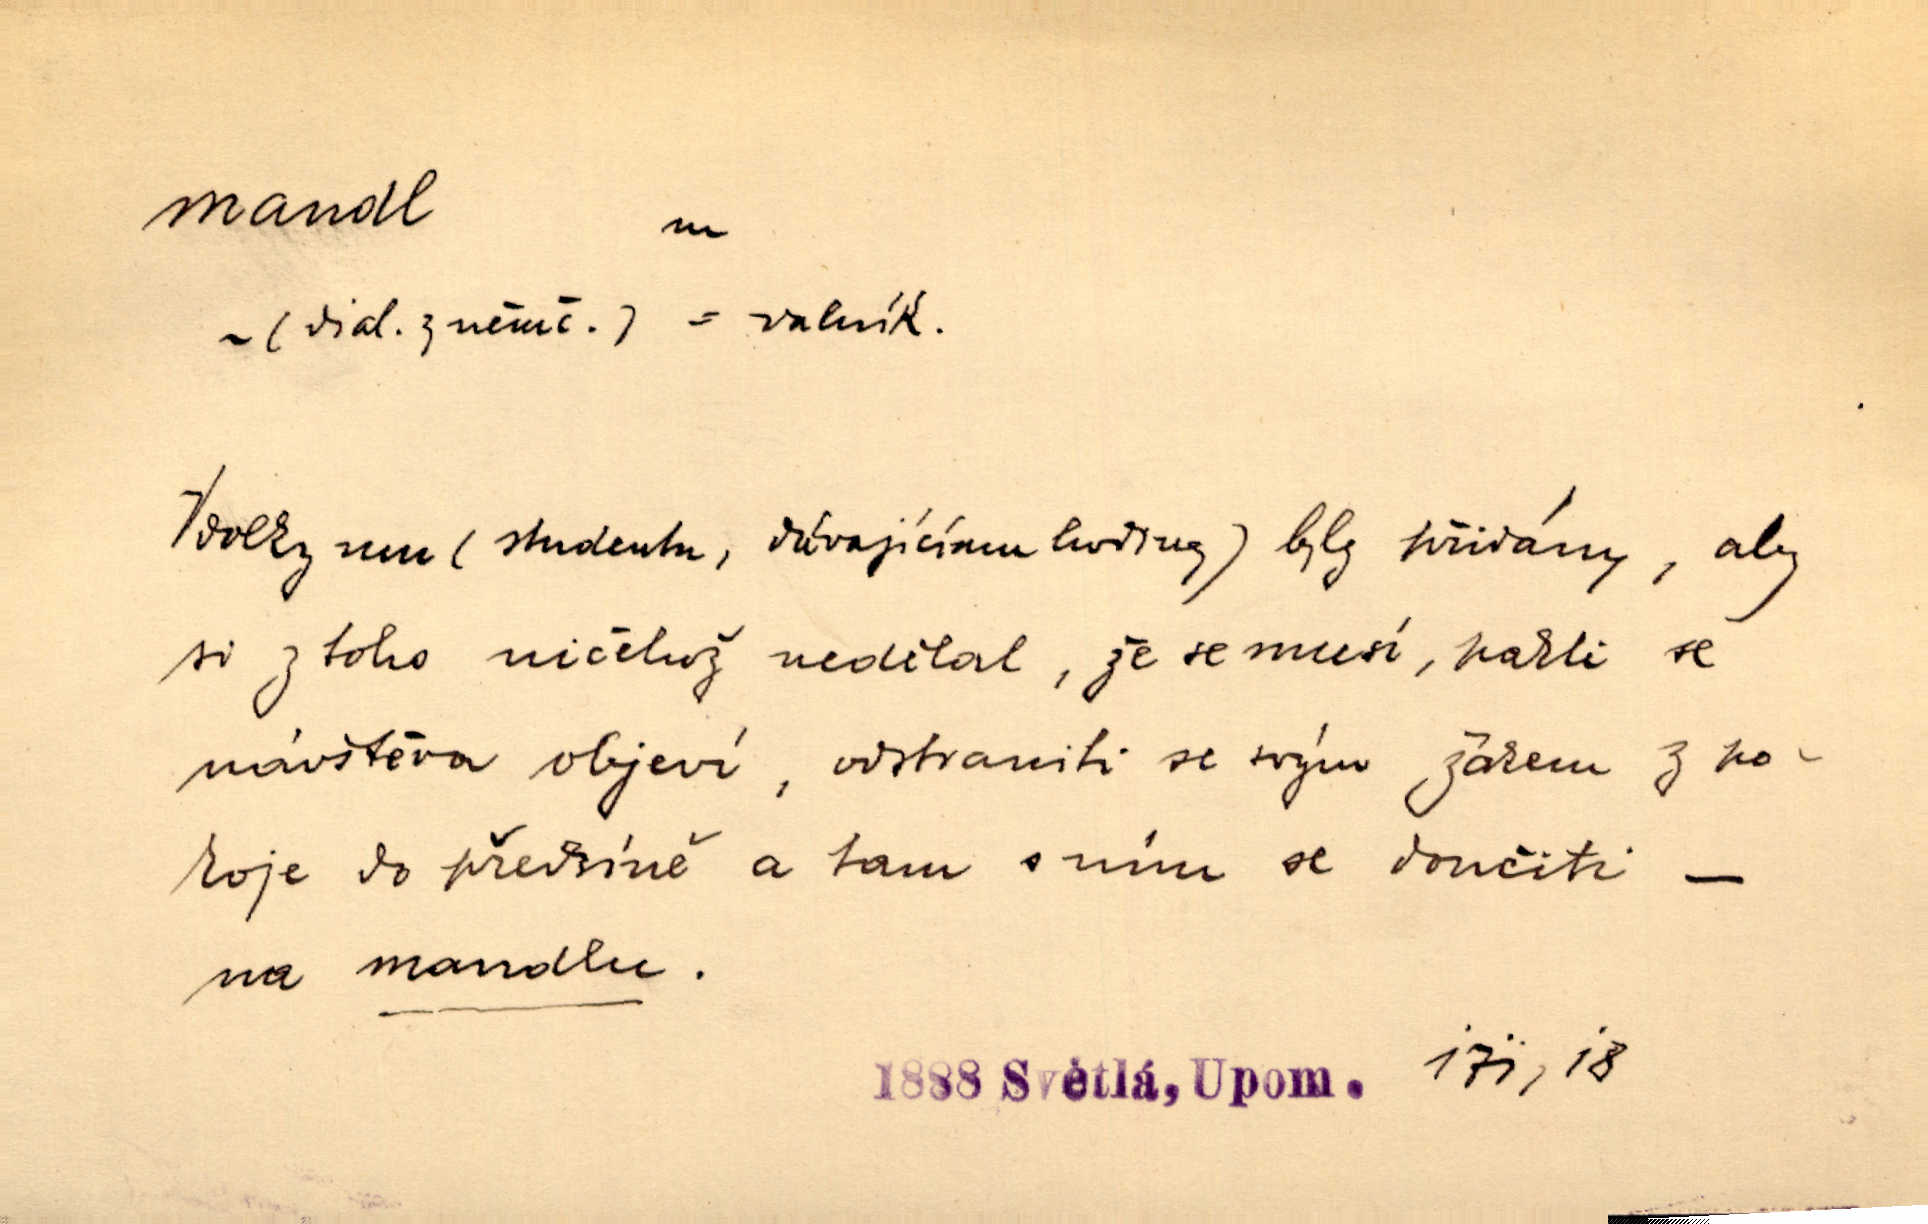 mandl m
~ (dial. z němč.) = valník.
Vdolky mu (studentu, dávajícímu hodiny) byly přidány, aby
si z toho ničehož nedělal, že se musí, pakli se
návštěva objeví, odstraniti se svým žákem z po-
koje do předsíně a tam s ním se doučiti —
na mandlu.
1888 Světlá, Upom. 171, 18